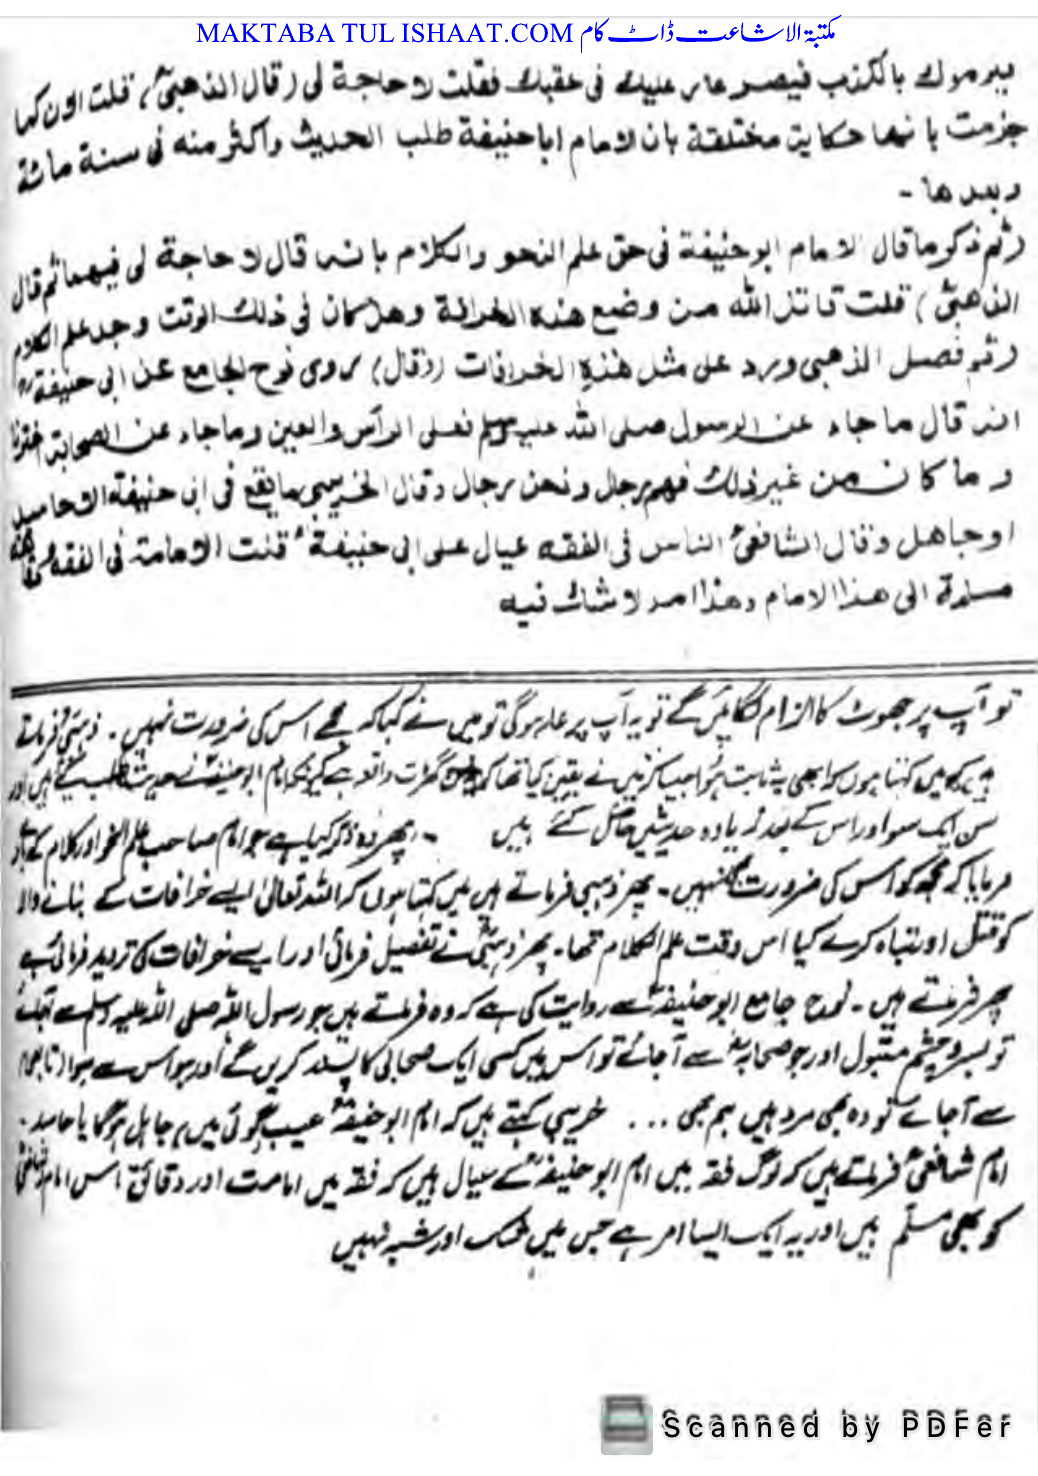 MAKTABA TUL ISHAAT.COM مکتبة الاشاعت ڈاٹ کام
یرموك بالكذب فیصیر عار علیك فی عقبك فقلت لا حاجة لی (قال الذهبیؒ) قلت الاٰن كما
جزمت بانها حکایة مختلقة بان الامام اباحنیفة طلب الحدیث واکثر منه فی سنة مائة
وبعدها -
(ثم ذکر ما قال الامام ابوحنیفة فی حق علم النحو والکلام بانه قال لا حاجة لی فیهما ثم قال
الذهبیؒ) قلت قاتل الله من وضع هذه الخرافة وهل کان فی ذلك الوقت وجد علم الکلام
(ثم فصل الذهبی ورد علی مثل هذه الخرافات (وقال) روی نوح الجامع عن ابی حنیفةؒ
انه قال ما جاء عن الرسول صلی الله علیه وسلم فعلی الرأس والعین وما جاء عن الصحابة اخترنا
وما کان من غیر ذلك فهم رجال ونحن رجال وقال الخریبی ما یقع فی ابی حنیفة الا حاسد
او جاهل وقال الشافعیؒ الناس فی الفقه عیال علی ابی حنیفةؒ قلت الامامة فی الفقه
مسلمة الی هذا الامام وهذا امر لا شك فیه
تو آپ پر جھوٹ کا الزام لگائیں گے تو یہ آپ پر عار ہوگی تو میں نے کہا کہ مجھے اس کی ضرورت نہیں۔ ذہبیؒ فرماتے
ہیں کہ میں کہتا ہوں کہ ابھی یہ ثابت ہوا جیسا کہ میں نے یقین کیا تھا کہ گھڑت واقعہ ہے کیونکہ امام ابوحنیفہؒ نے حدیث طلب کی ہیں اور
سن ایک سو اور اس کے بعد زیادہ حدیثیں حاصل کئے ہیں ۔ پھر وہ ذکر کیا ہے جو امام صاحب علم نحو اور کلام کے
فرمایا کہ مجھ کو اس کی ضرورت نہیں۔ پھر ذہبی فرماتے ہیں میں کہتا ہوں کہ اللہ تعالیٰ ایسے خرافات کے بنانے والا
کو قتل اور تباہ کرے کیا اس وقت علم الکلام تھا۔ پھر ذہبیؒ نے تفصیل فرمائی اور ایسے خرافات کی تردید فرمائی ہے
پھر فرماتے ہیں۔ نوح جامع ابوحنیفہؒ سے روایت کی ہے کہ وہ فرماتے ہیں جو رسول اللہ صلی اللہ علیہ وسلم سے آجائے
تو بسر و چشم مقبول اور جو صحابہؓ سے آجائے تو اس میں کسی ایک صحابی کا پسند کریں گے اور جو اس سے سوا (تابعی)
سے آجائے تو وہ بھی مرد ہیں ہم بھی ... خریبی کہتے ہیں کہ امام ابوحنیفہؒ عیب گوئی میں جاہل ہوگا یا حاسد۔
امام شافعیؒ فرماتے ہیں کہ لوگ فقہ میں امام ابوحنیفہؒ کے عیال ہیں کہ فقہ میں امامت اور دقائق اس امام
کو بھی مسلّم ہیں اور یہ ایک ایسا امر ہے جس میں شک اور شبہ نہیں
Scanned by PDFer